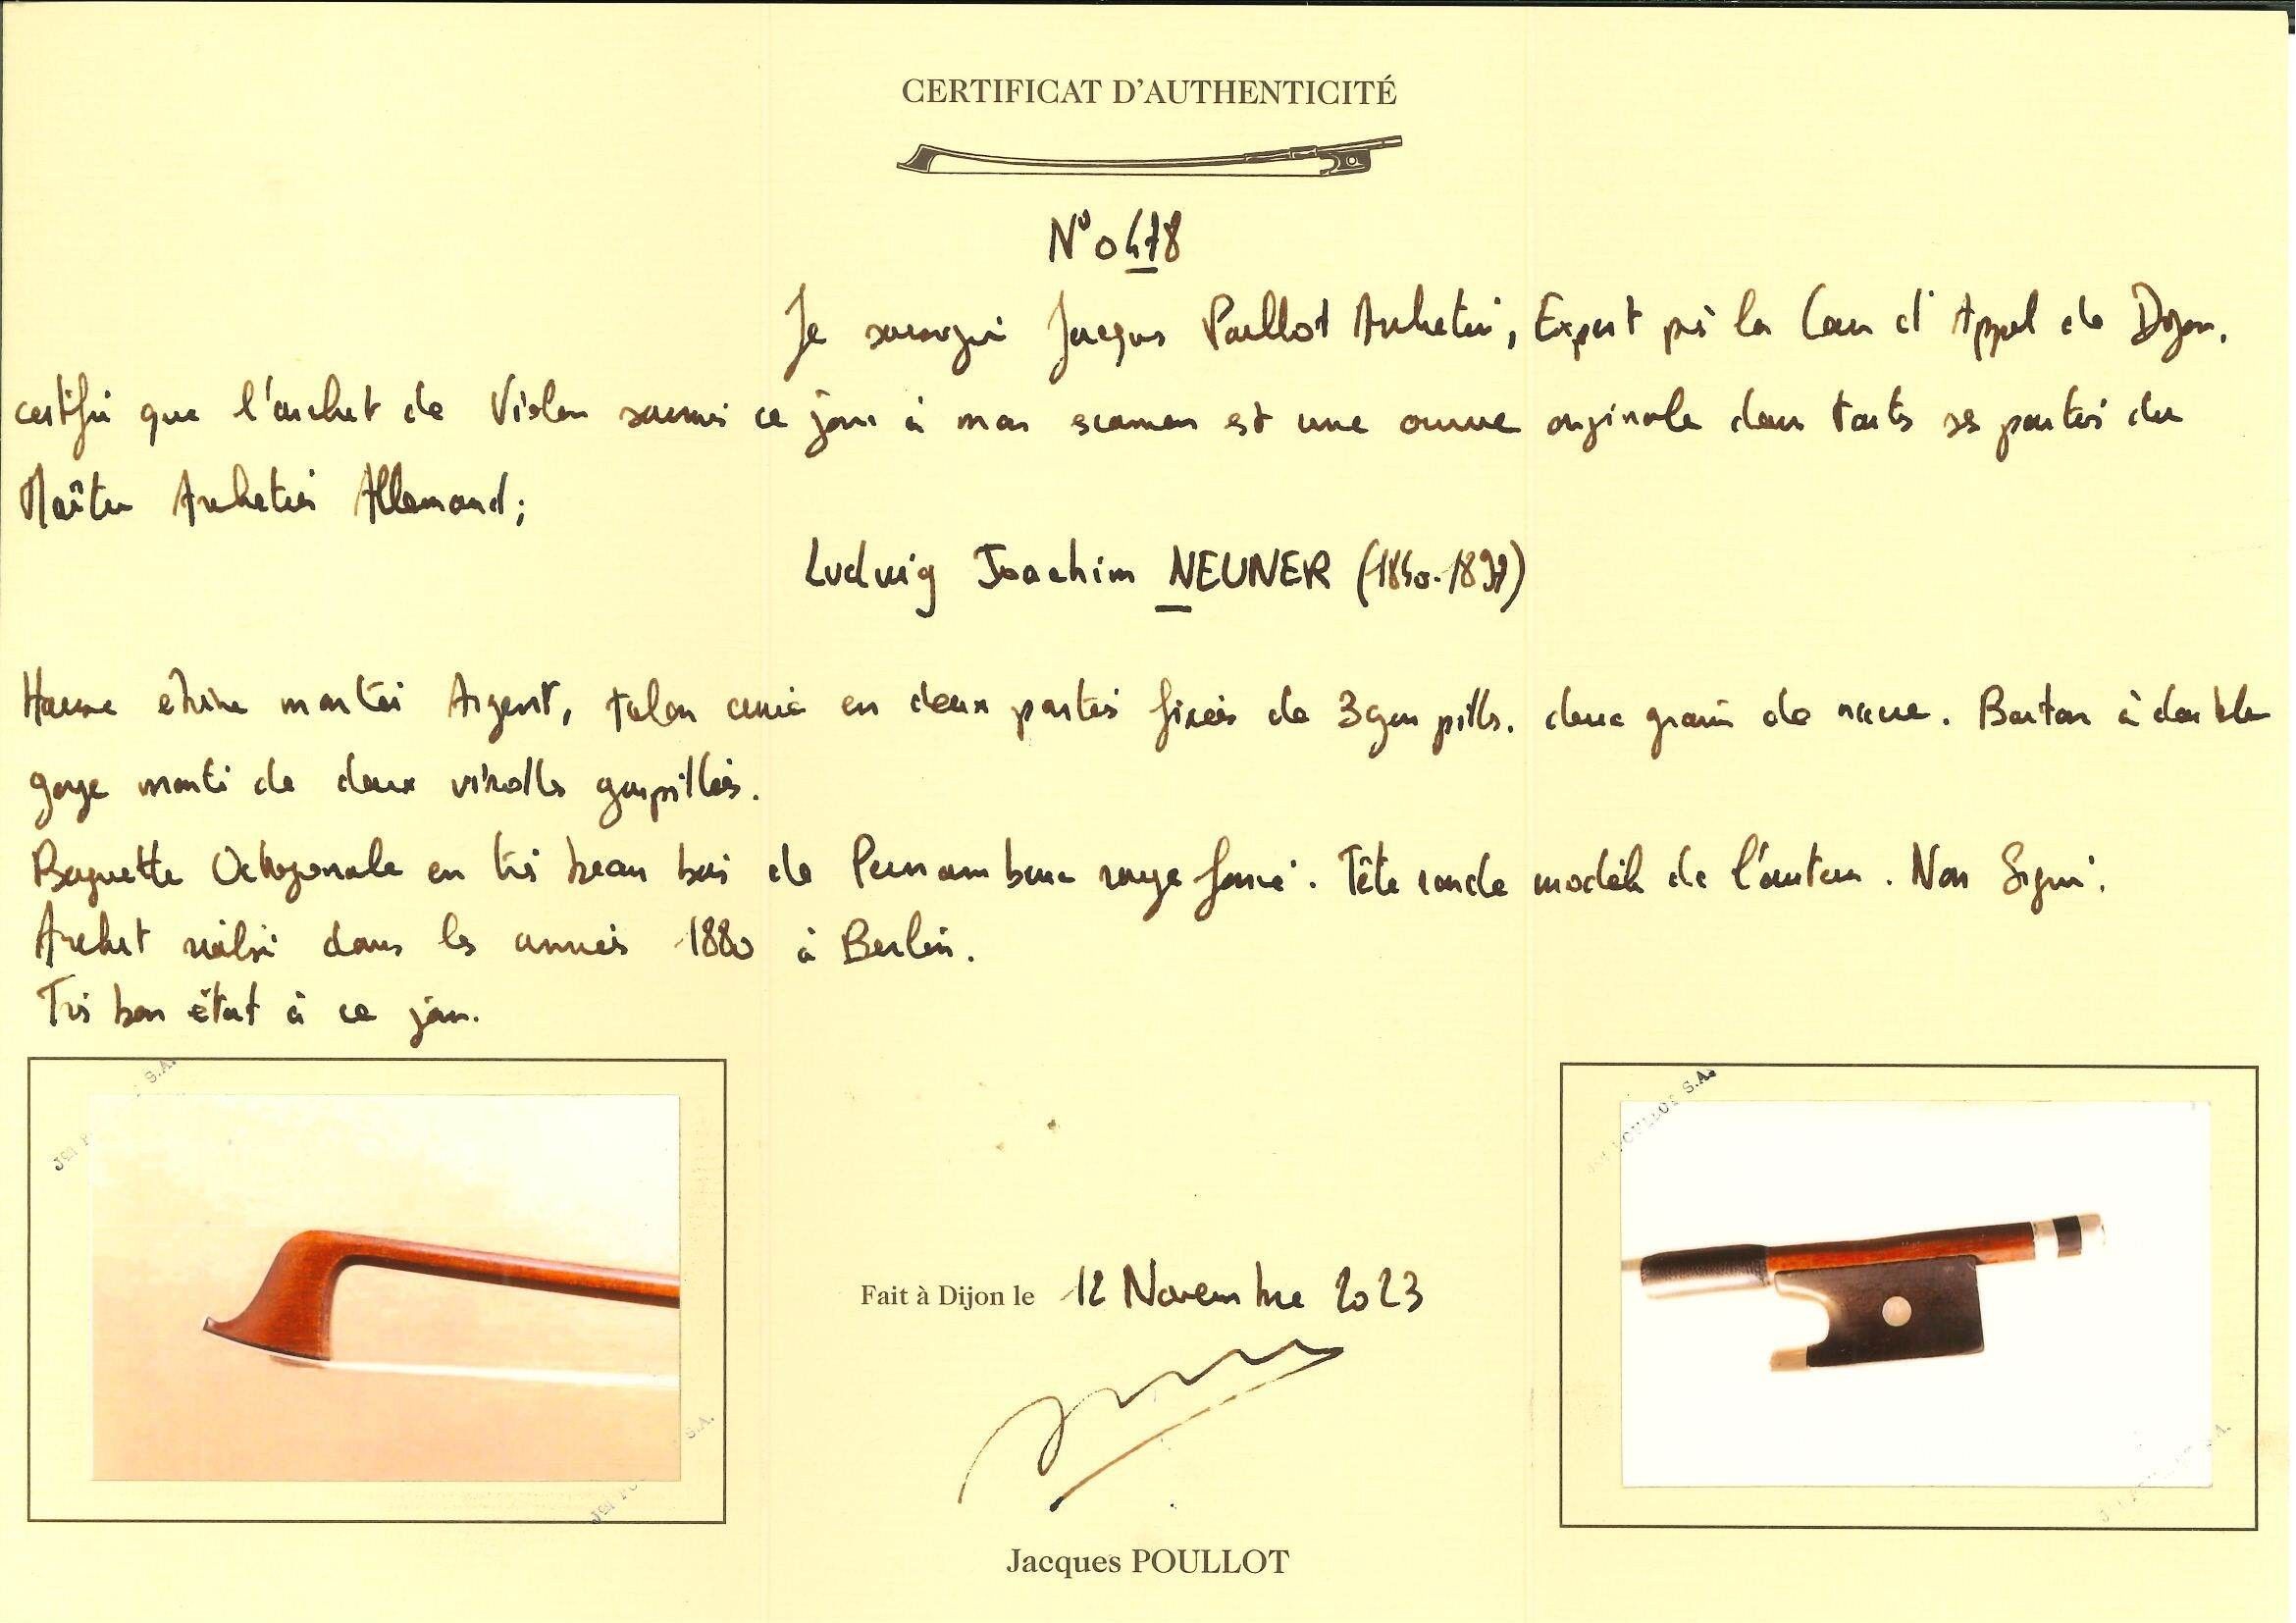 CERTIFICAT D'AUTHENTICITÉ
N° 0478
Je soussigné Jacques Poullot Archetier, Expert près la Cour d'Appel de Dijon,
certifie que l'archet de Violon soumis ce jour à mon examen est une œuvre originale dans toutes ses parties du
Maître Archetier Allemand;
Ludwig Joachim NEUNER (1840-1897)
Hausse ébène montée Argent, talon carré en deux parties fixées de 3 goupilles. deux grains de nacre. Bouton à double
gorge monté de deux viroles goupillées.
Baguette Octogonale en très beau bois de Pernambouc rouge foncé. Tête ronde modèle de l'auteur. Non Signé.
Archet réalisé dans les années 1880 à Berlin.
Très bon état à ce jour.
S.A.
POULLOT S.A.
S.A.
Fait à Dijon le 12 Novembre 2023
Jacques POULLOT